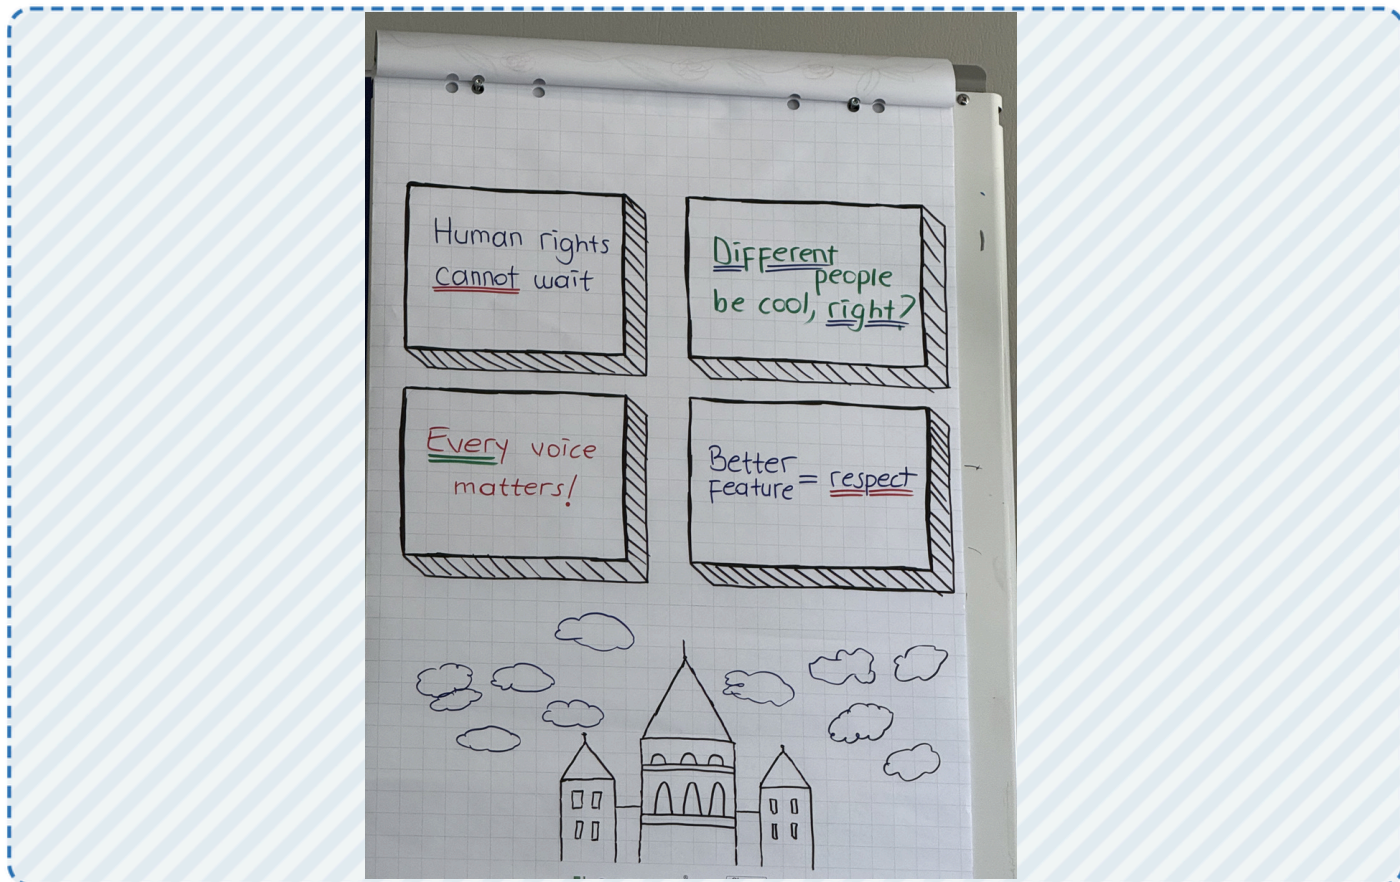 Human rights
cannot wait
Different
people
be cool, right?
Every voice
matters!
Better
Feature = respect